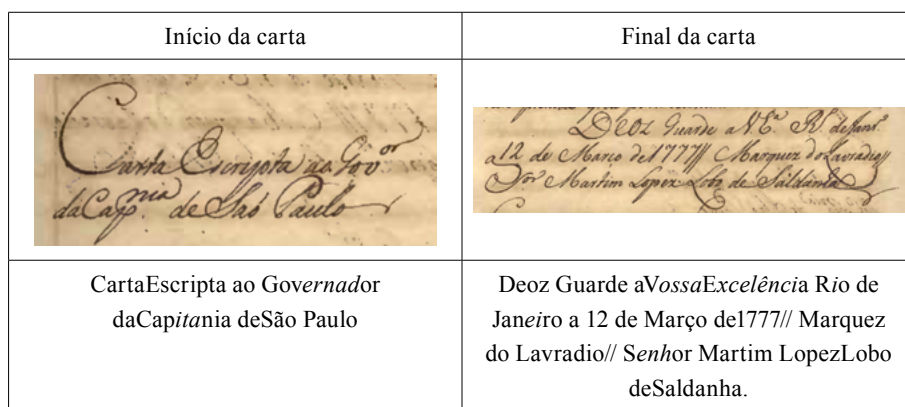 Início da carta
Final da carta
Carta Escripta ao Gov.or
da Cap.nia de Saó Paulo
Deoz Guarde a V E.a R.o de Jan.ro
a 12 de Março de 1777// Marquez do Lavradio//
S.or Martim Lopez Lobo de Saldanha
CartaEscripta ao Governador
daCapitania deSão Paulo
Deoz Guarde aVossaExcelência Rio de
Janeiro a 12 de Março de1777// Marquez
do Lavradio// Senhor Martim LopezLobo
deSaldanha.